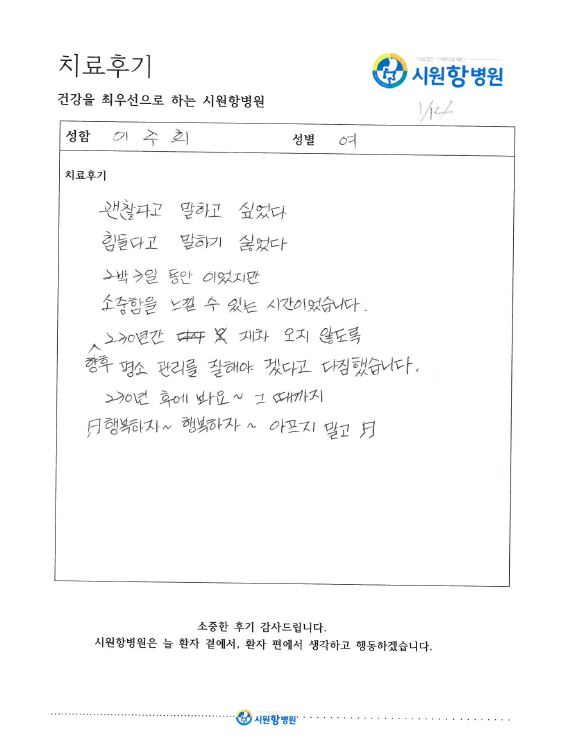 치료후기
시원항병원
건강을 최우선으로 하는 시원항병원
1/14
성함 이주희 성별 여
치료후기
괜찮다고 말하고 싶었다
힘들다고 말하기 싫었다
2박 3일 동안 이었지만
소중함을 느낄 수 있는 시간이었습니다.
향후 230년간 재차 오지 않도록
평소 관리를 잘해야 겠다고 다짐했습니다.
230년 후에 봐요~ 그 때까지
♬행복하자~ 행복하자~ 아프지 말고♬
소중한 후기 감사드립니다.
시원항병원은 늘 환자 곁에서, 환자 편에서 생각하고 행동하겠습니다.
시원항병원